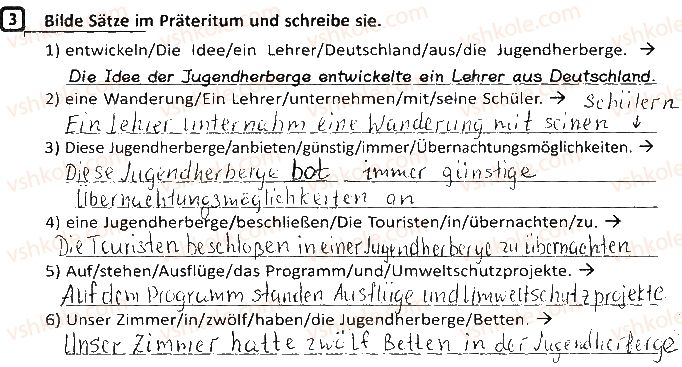 3 Bilde Sätze im Präteritum und schreibe sie.
1) entwickeln/Die Idee/ein Lehrer/Deutschland/aus/die Jugendherberge. →
Die Idee der Jugendherberge entwickelte ein Lehrer aus Deutschland.
2) eine Wanderung/Ein Lehrer/unternehmen/mit/seine Schüler. → Schülern
Ein Lehrer unternahm eine Wanderung mit seinen ↓
3) Diese Jugendherberge/anbieten/günstig/immer/Übernachtungsmöglichkeiten. →
Diese Jugendherberge bot immer günstige
Übernachtungsmöglichkeiten an
4) eine Jugendherberge/beschließen/Die Touristen/in/übernachten/zu. →
Die Touristen beschloßen in einer Jugendherberge zu übernachten
5) Auf/stehen/Ausflüge/das Programm/und/Umweltschutzprojekte. →
Auf dem Programm standen Ausflüge und Umweltschutzprojekte
6) Unser Zimmer/in/zwölf/haben/die Jugendherberge/Betten. →
Unser Zimmer hatte zwölf Betten in der Jugendherberge